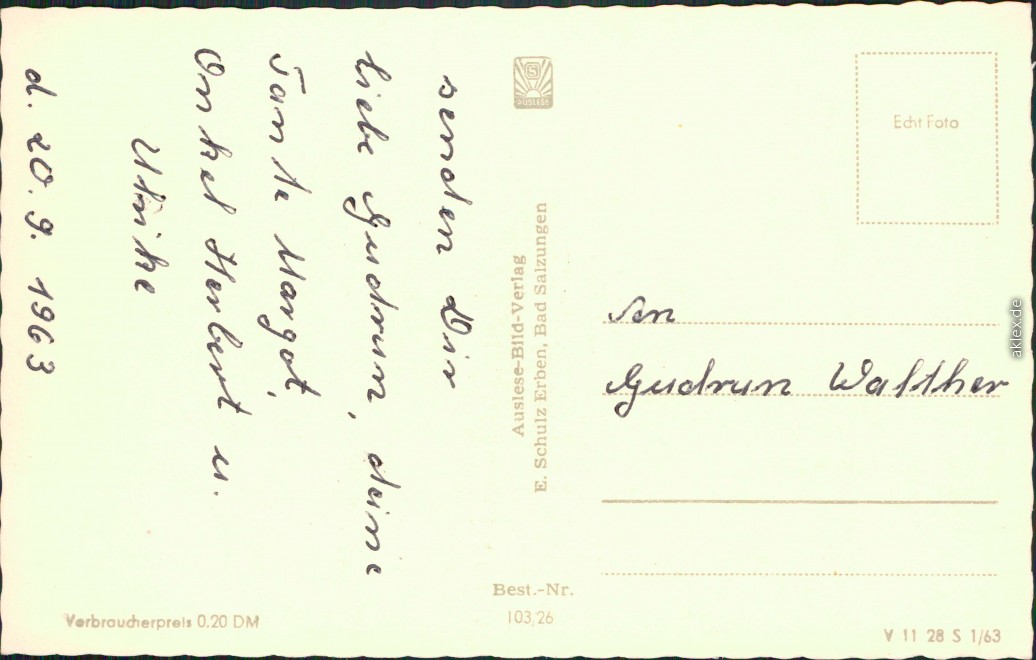 senden Dir
liebe Gudrun, deine
Tante Margot,
Onkel Herbert u.
Ulrike
d. 20. 9. 1963
AUSLESE
Auslese-Bild-Verlag
E. Schulz Erben, Bad Salzungen
Echt Foto
An
Gudrun Walther
Best.-Nr.
103/26
Verbraucherpreis 0.20 DM
V 11 28 S 1/63
aklex.de